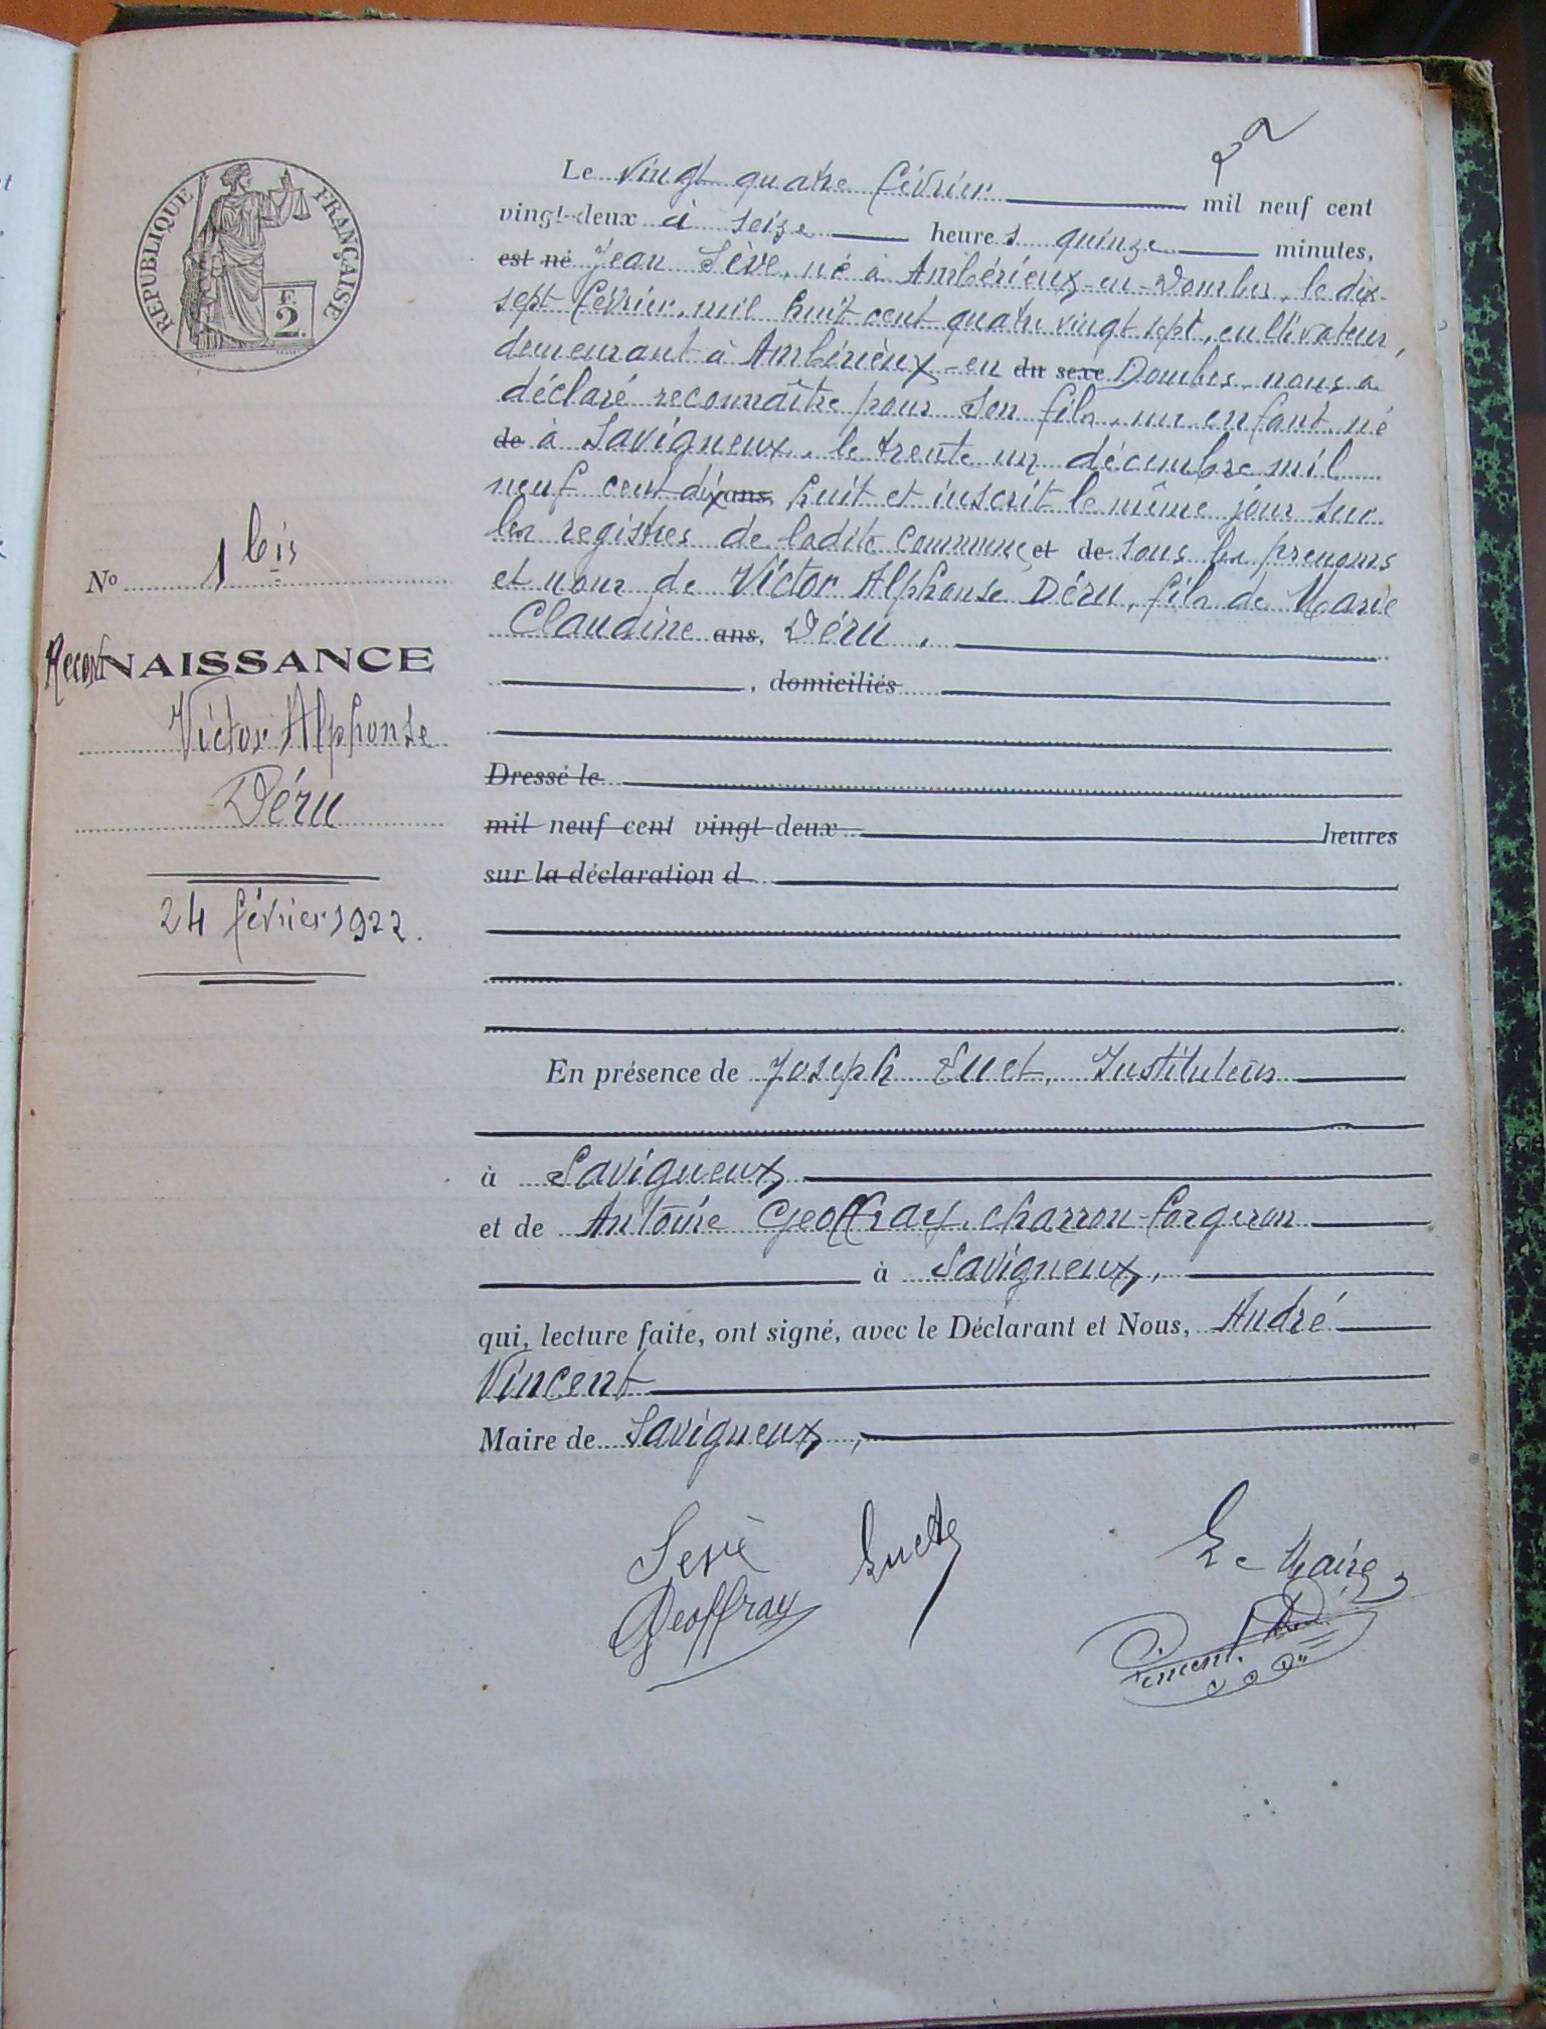 RÉPUBLIQUE FRANÇAISE
2
Le vingt quatre février mil neuf cent
vingt-deux à seize heures quinze minutes,
est né Jean Sève, né à Ambérieux-en-Dombes, le dix-
sept février, mil huit cent quatre vingt sept, cultivateur,
demeurant à Ambérieux-en du sexe Dombes, nous a
déclaré reconnaître pour son fils, un enfant né
de à Savigneux, le trente un décembre mil
neuf cent dix ans, huit et inscrit le même jour sur
les registres de ladite commune et de sous les prenoms
et nom de Victor Alphonse Déru, fils de Marie
Claudine ans, Déru.
, domiciliés
Dressé le
mil neuf cent vingt-deux heures
sur la déclaration d
No 1 bis
ReconNAISSANCE
Victor Alphonse
Déru
24 février 1922.
En présence de Joseph Instituteur
à Savigneux
et de Antoine Geoffray, charron-forgeron
à Savigneux,
qui, lecture faite, ont signé, avec le Déclarant et Nous, André
Vincent
Maire de Savigneux,
Sève
Le Maire
Geoffray
Vincent